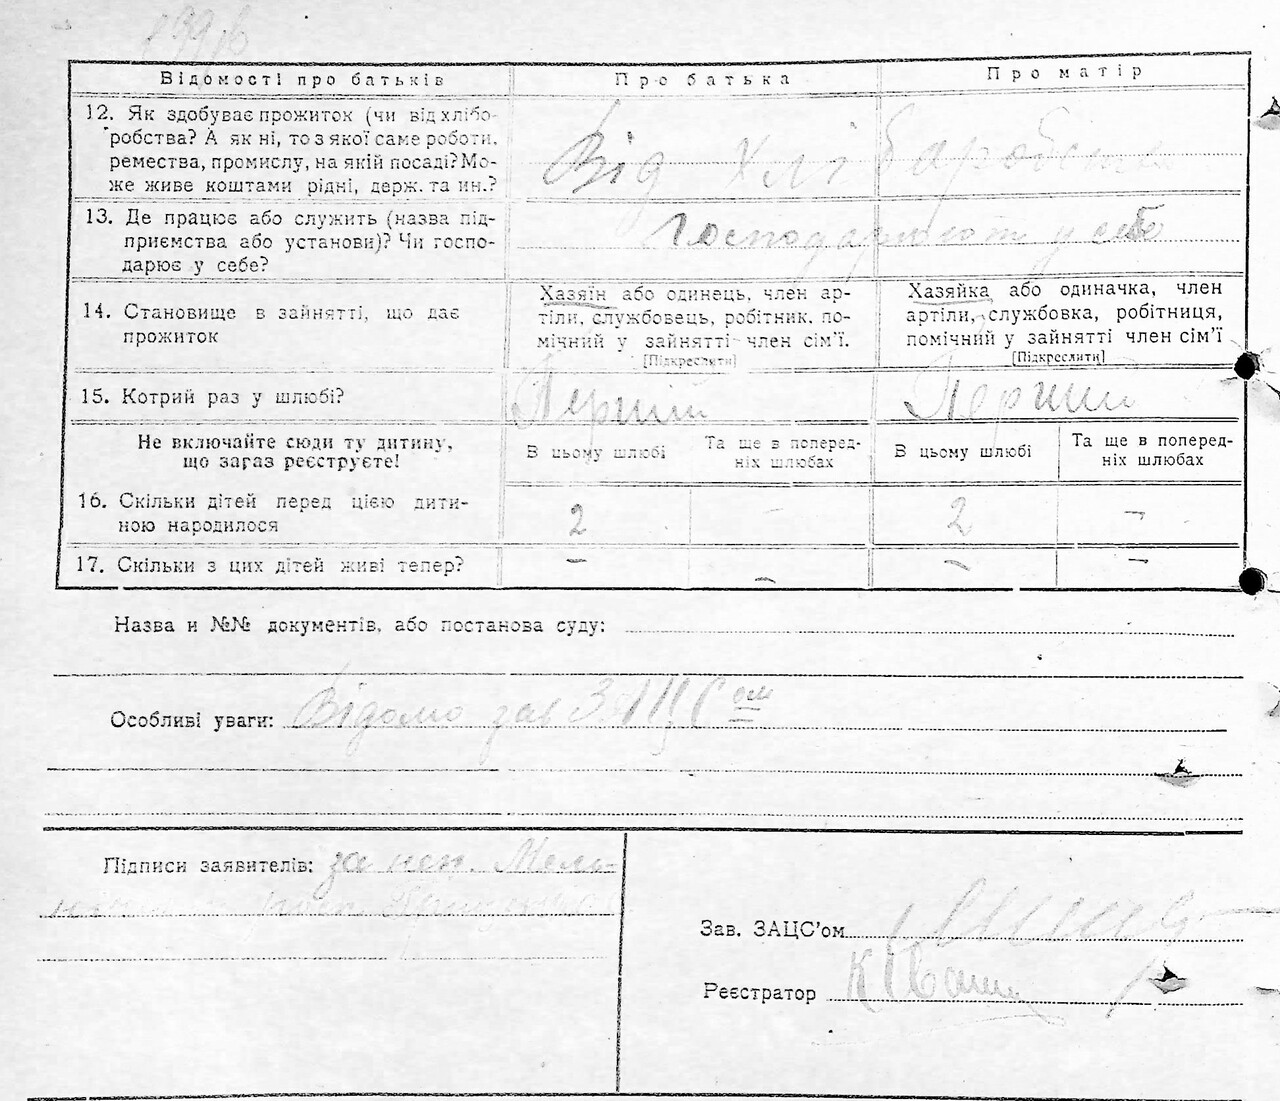 Відомості про батьків Про батька Про матір
12. Як здобуває прожиток (чи від хлібо-
робства? А як ні, то з якої саме роботи,
ремества, промислу, на якій посаді? Мо-
же живе коштами рідні, держ. та ин.?
Від хліборобства
13. Де працює або служить (назва під-
приємства або установи)? Чи госпо-
дарює у себе?
Господарюют у себе
14. Становище в зайнятті, що дає
прожиток
Хазяїн або одинець, член ар-
тіли, службовець, робітник, по-
мічний у зайнятті член сім'ї.
[Підкреслити]
Хазяйка або одиначка, член
артіли, службовка, робітниця,
помічний у зайнятті член сім'ї
[Підкреслити]
15. Котрий раз у шлюбі? Перший Перший
Не включайте сюди ту дитину,
що загаз реєструєте!
В цьому шлюбі Та ще в поперед-
ніх шлюбах В цьому шлюбі Та ще в поперед-
ніх шлюбах
16. Скільки дітей перед цією дити-
ною народилося 2 - 2 -
17. Скільки з цих дітей живі тепер? - - - -
Назва и №№ документів, або постанова суду:
Особливі уваги: Відомо за 3
Підписи заявителів: за неп. Мель-
Зав. ЗАЦС'ом
Реєстратор